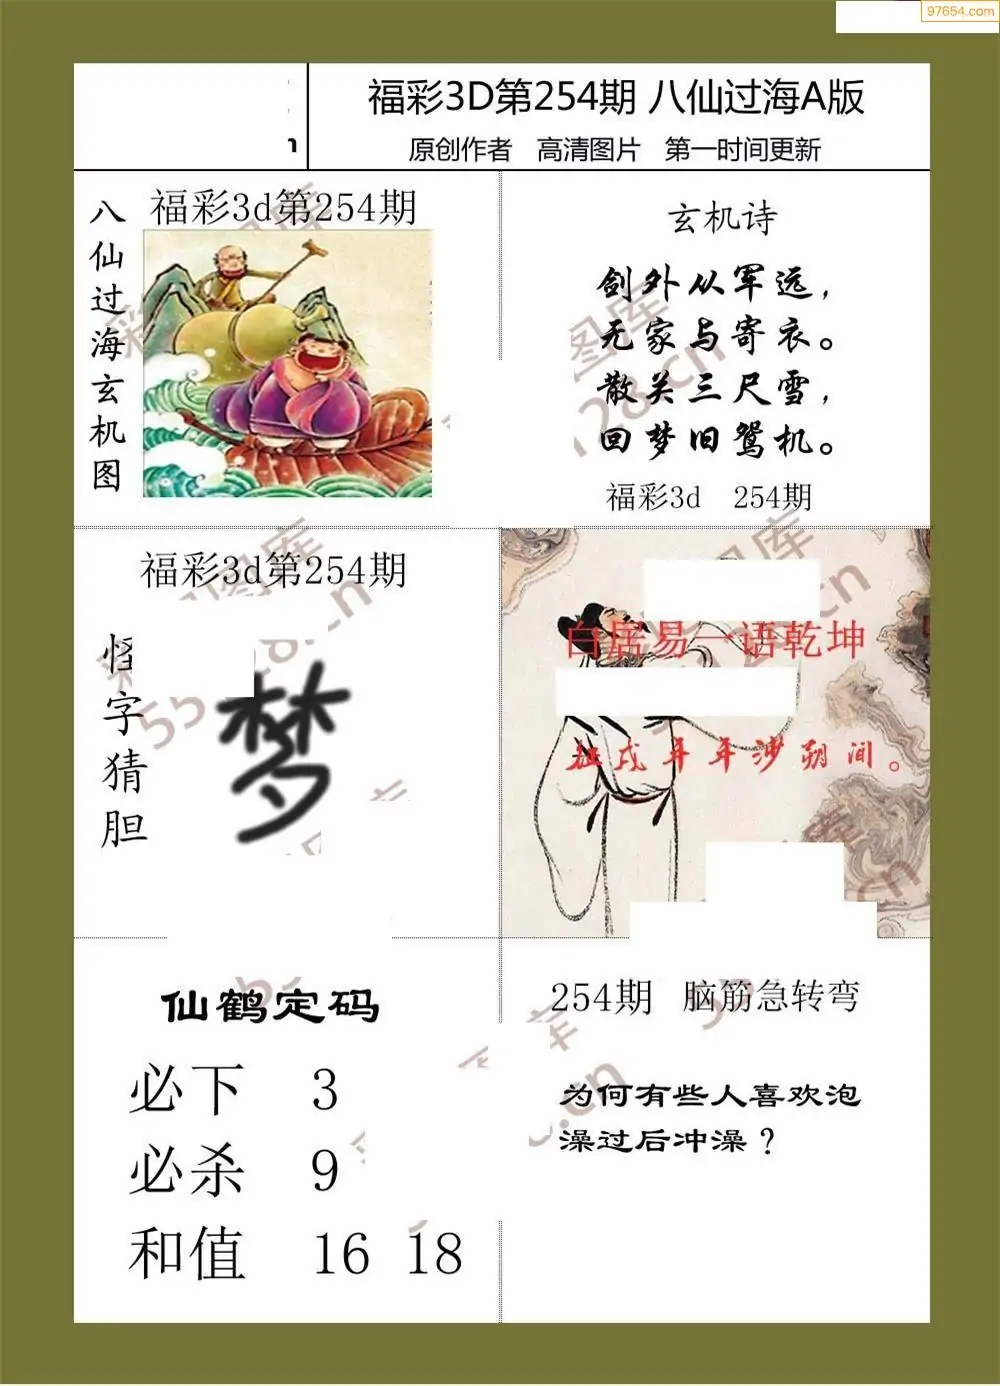 97654.com
福彩3D第254期 八仙过海A版
原创作者 高清图片 第一时间更新
八仙过海玄机图
福彩3d第254期
玄机诗
剑外从军远，
无家与寄衣。
散关三尺雪，
回梦旧鸳机。
福彩3d 254期
福彩3d第254期
字猜胆
梦
白居易一语乾坤
年年沙朔间。
仙鹤定码
必下 3
必杀 9
和值 16 18
254期 脑筋急转弯
为何有些人喜欢泡
澡过后冲澡？